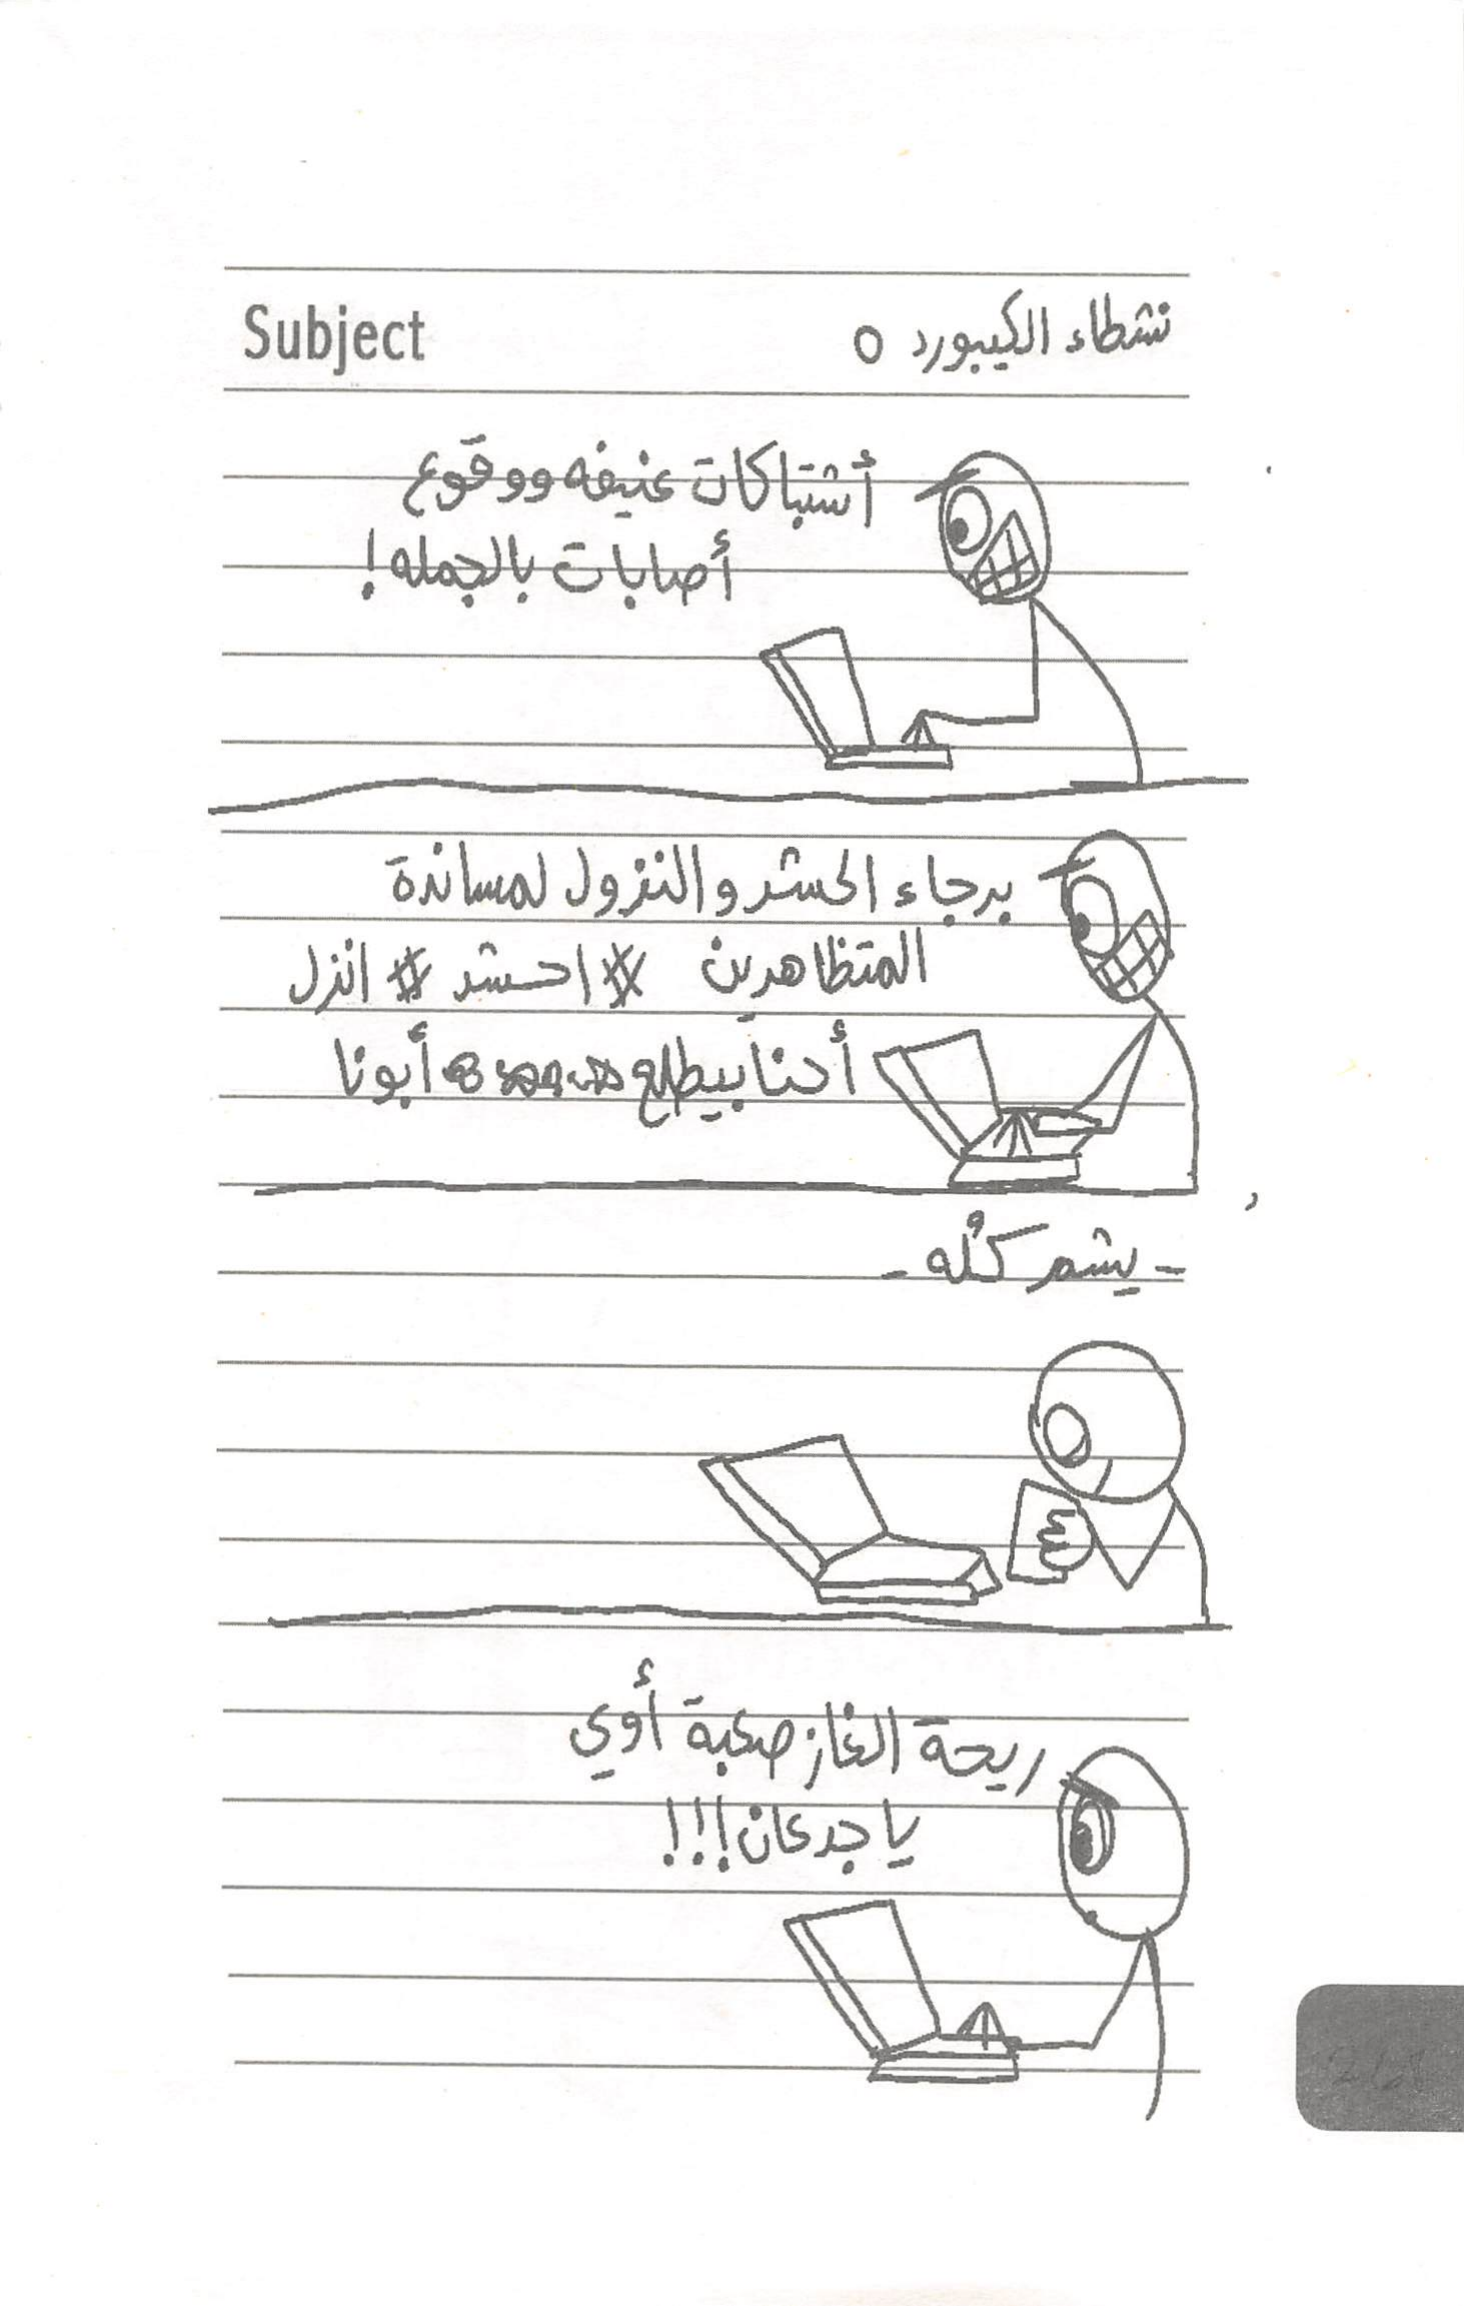 Subject
نشطاء الكيبورد 5
أشتباكات عنيفه ووقوع
أصابات بالجمله!
برجاء الحشد والنزول لمساندة
المتظاهرين #احشد #انزل
أحنا بيطلع أبونا
- يشم كُله -
ريحة الغاز صعبة أوي
يا جدعان!!!